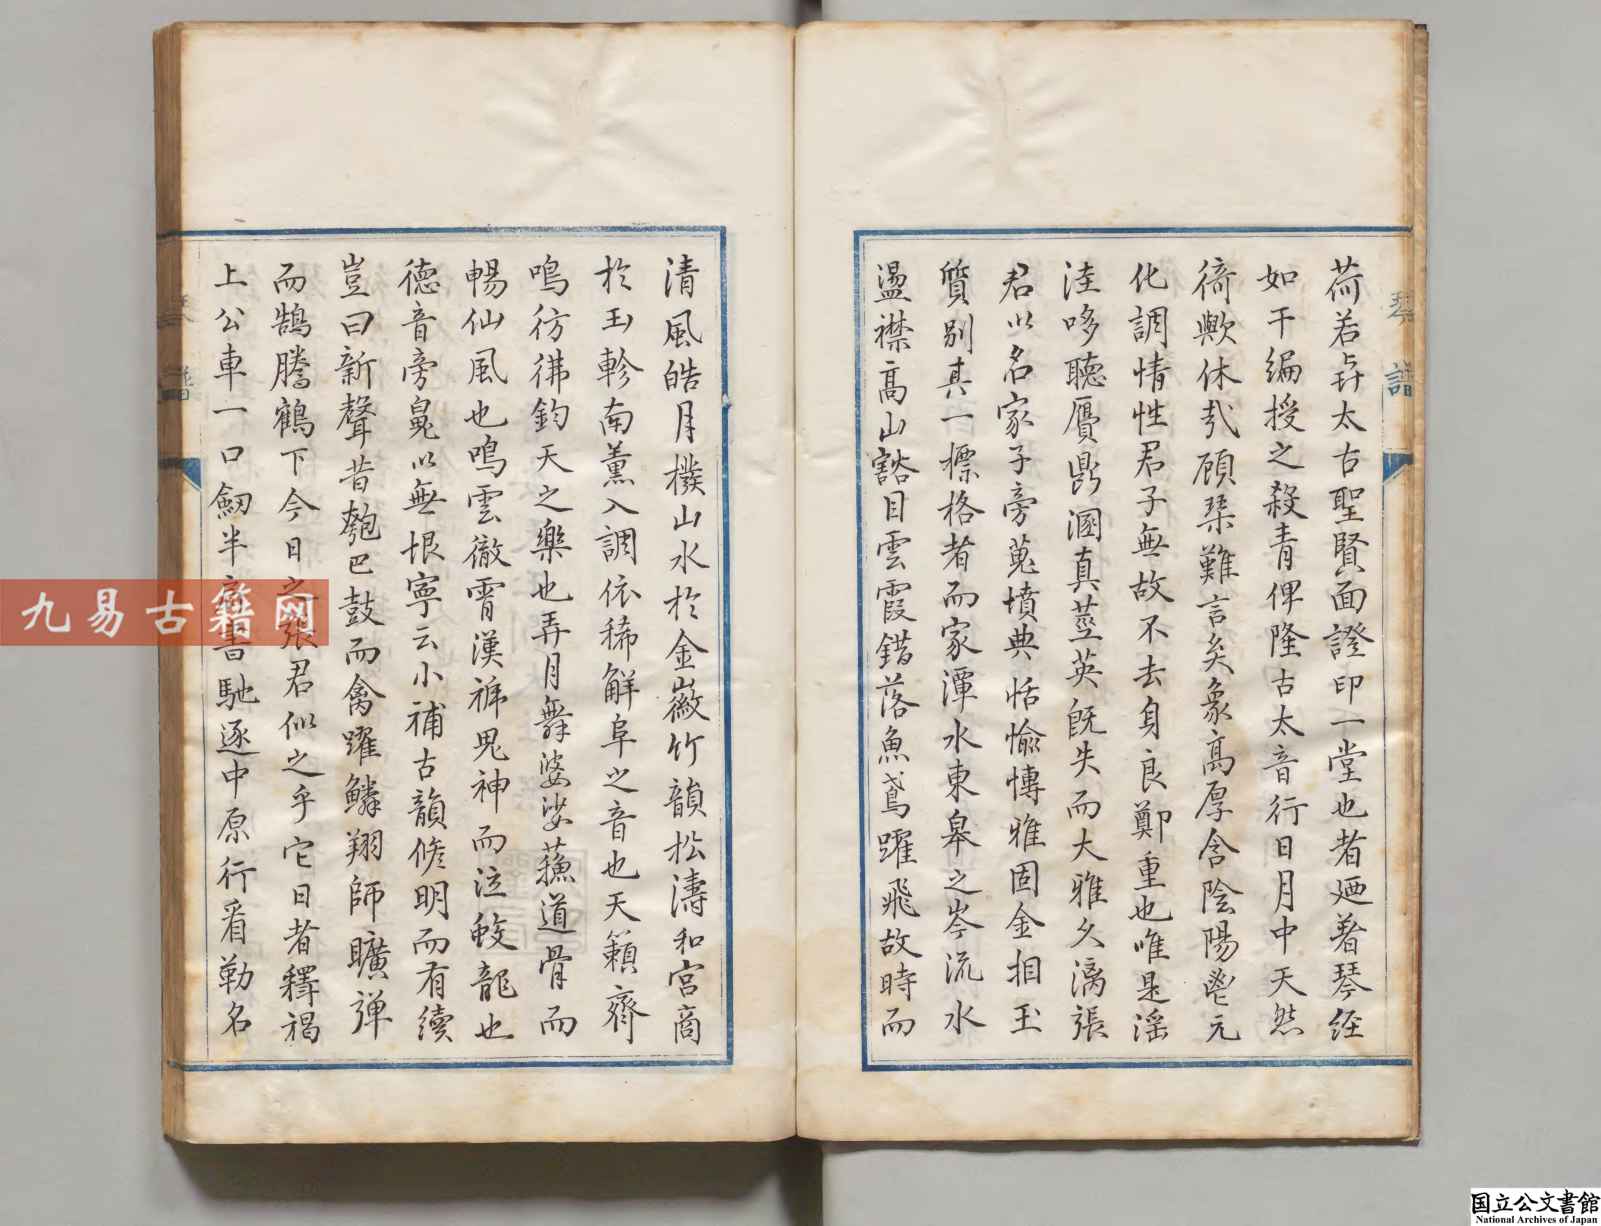 荷若卉太古聖賢面證印一堂也者廼著琴經
如干編授之殺青俾隆古太音行日月中天然
猗歟休哉顧琹難言矣象高厚含陰陽鬯元
化調情性君子無故不去身良鄭重也唯是滛
洼哆聽贋鼎溷真莖英旣失而大雅久漓張
君以名家子旁蒐墳典恬愉慱雅固金相玉
質别具一摽格者而家潭水東皋之岑流水
盪襟高山豁目雲霞錯落魚鳶躍飛故時而
清風皓月撲山水於金徽竹韻松濤和宮商
於玉軫南薫入調依稀觧阜之音也天籟齊
鳴彷彿鈞天之樂也弄月舞婆娑蘓道骨而
暢仙風也鳴雲徹霄漢禠鬼神而泣蛟龍也
德音旁毣以無恨寧云小補古韻修明而有續
豈曰新聲昔匏巴鼓而禽躍鱗翔師曠弹
而鵠騰鶴下今日之張君似之乎它日者釋褐
上公車一口劒半馳逐中原行看勒名
琴譜
九易古籍网
国立公文書館
National Archives of Japan